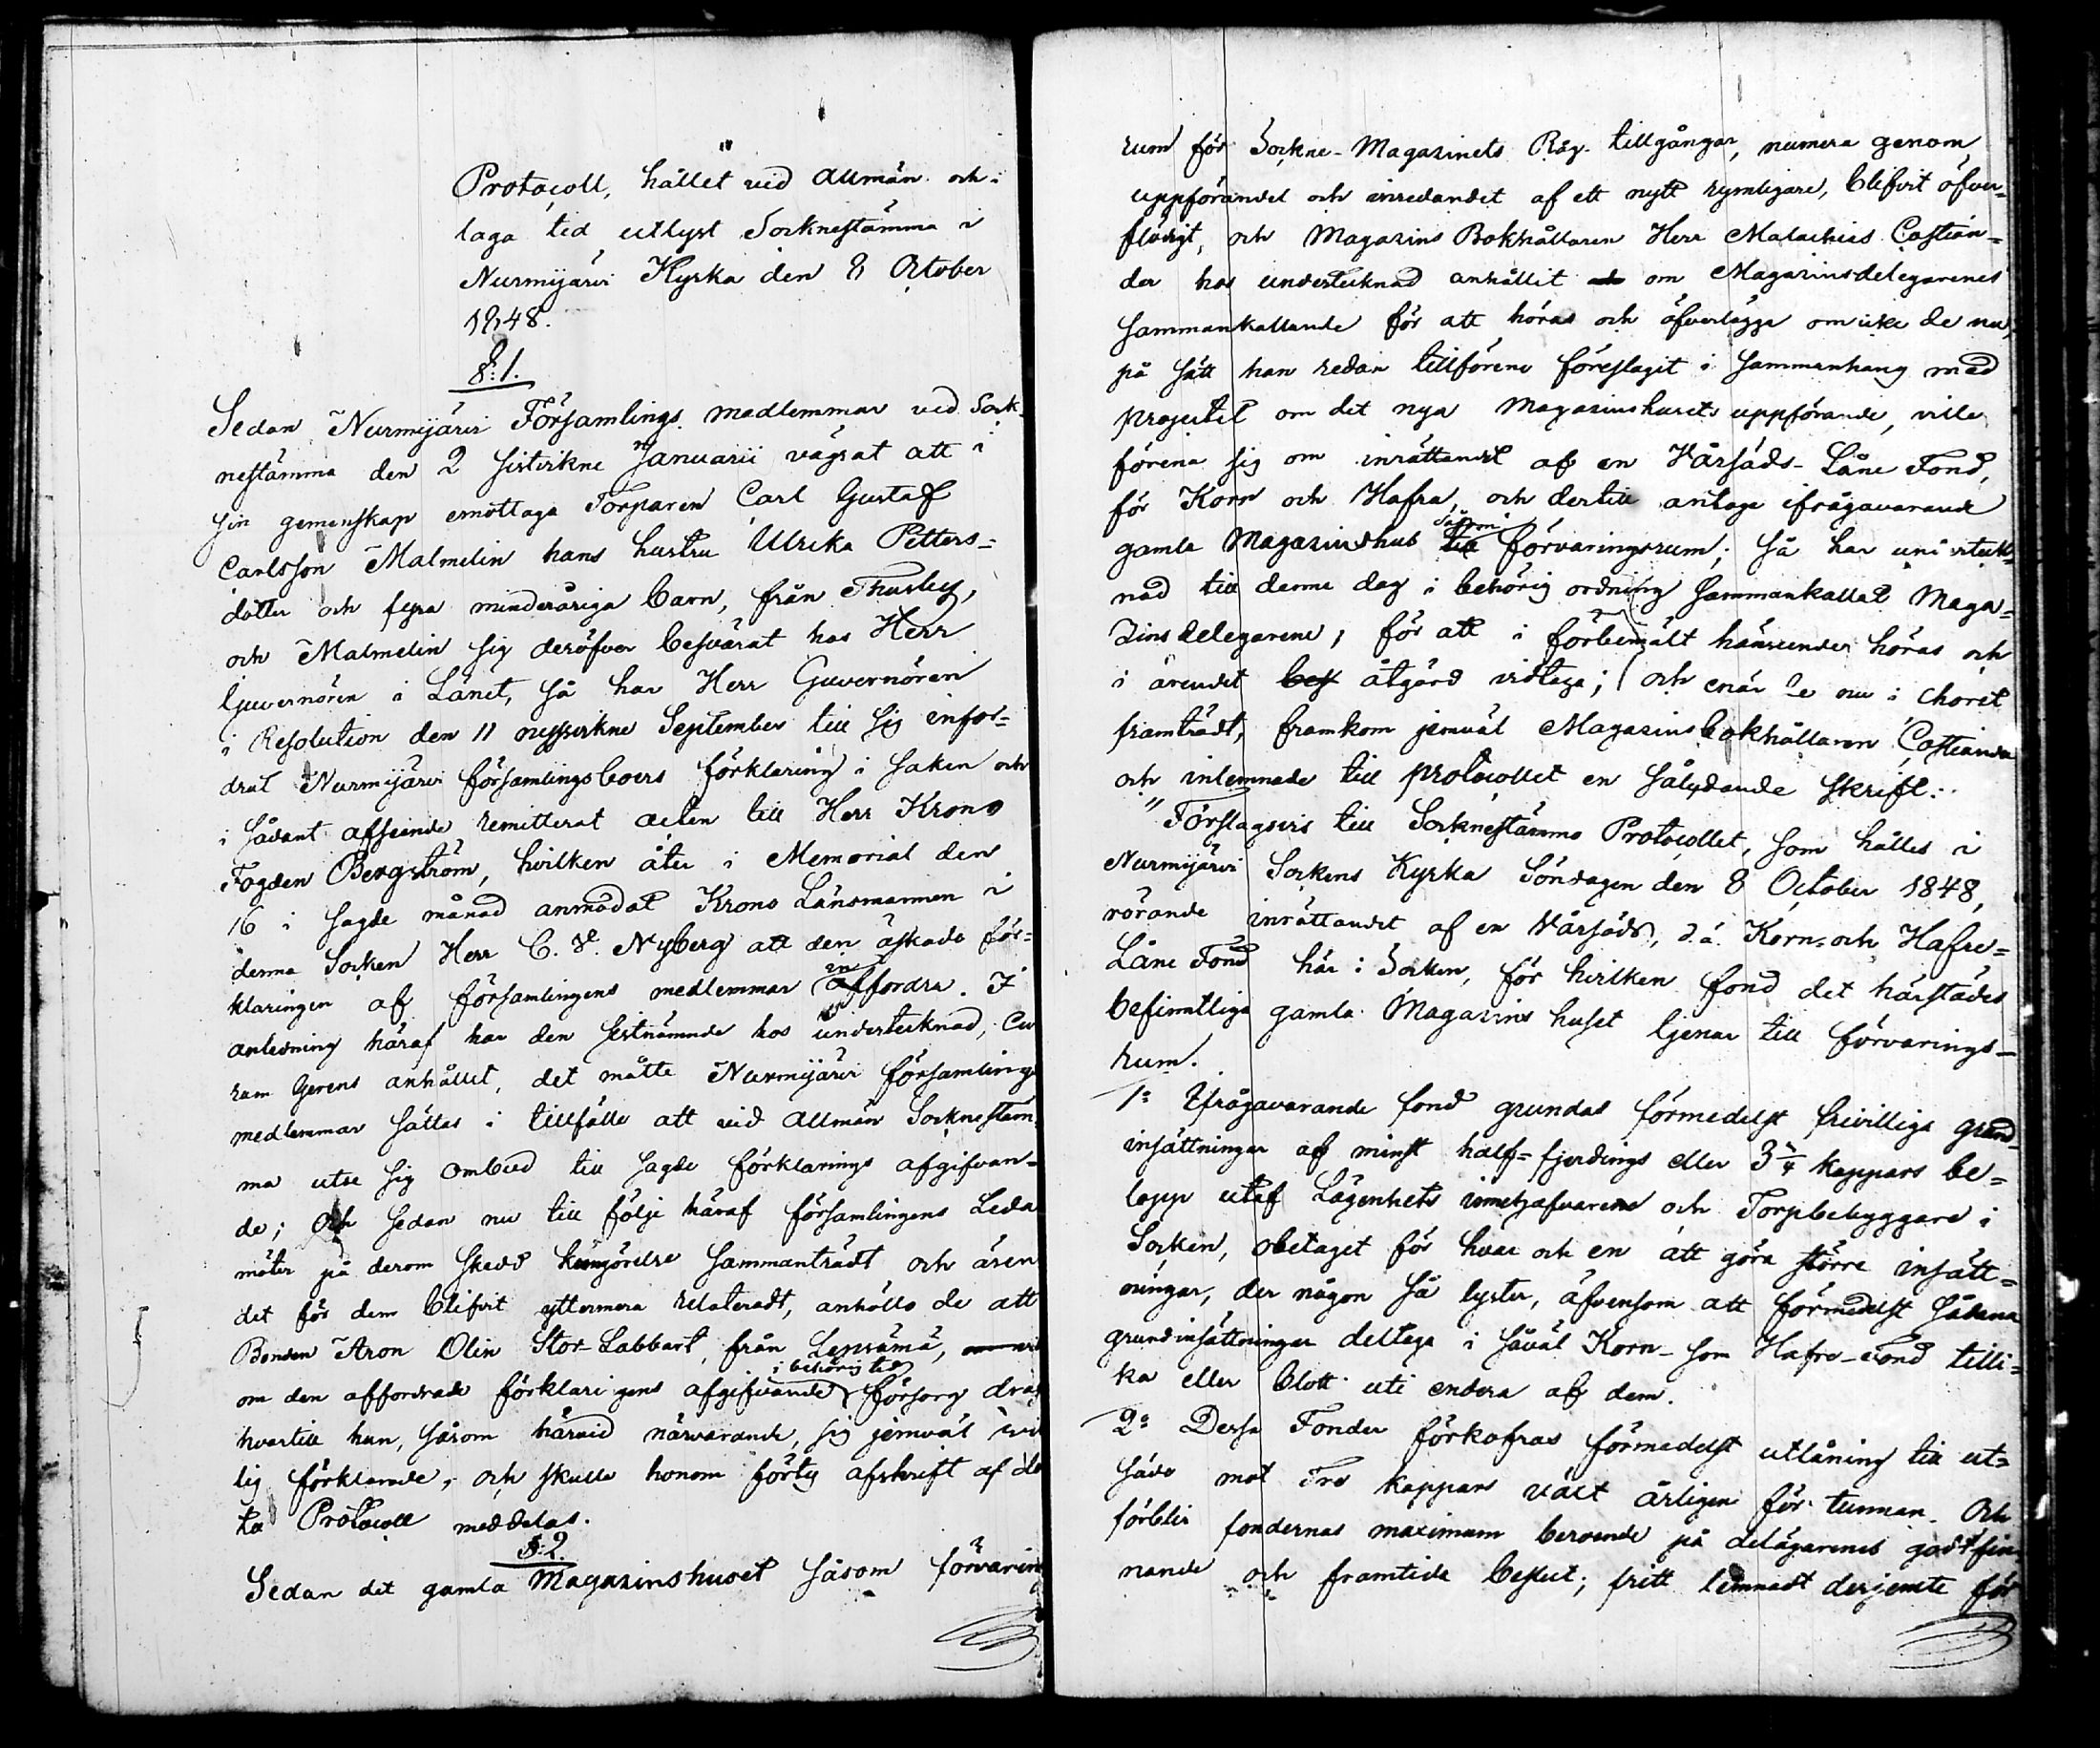 Protocoll, hållet vid allmän och i
laga tid utlyst Sockneſtämma i
Nurmijärvi Kyrka den 8 October
1848.
§: 1.
Sedan Nurmijärvi Församlings medlemmar vid Sock-
neſtämma den 2 ſiſtvikne Januarii vägrat att i
ſin gemenſkap emottaga Torparen Carl Guſtaf
Carlsſon Malmelin hans huſtru Ulrika Petters-
dotter och fyra minderåriga barn, från Thusby,
och Malmelin ſig deröfver beſvärat hos Herr
Guvernören i Länet, ſå har Herr Guvernören
i Reſolution den 11 nyſsvikne September till ſig infor-
drat Nurmijärvi förſamlingsboers förklaring i ſaken och
i ſådant afſeende remitterat acten till Herr Krono
Fogden Bergſtröm, hvilken åter i Memorial den
16 i ſagde månad anmodat Krono Länsmannen i
denna Socken Herr C. V. Nyberg att den äſkade för-
klaringen af förſamlingens medlemmar infordra. I
anledning häraf har den ſiſtnämnde hos undertecknad, Cu
ram Gerens anhållit, det måtte Nurmijärvi förſamlings
medlemmar ſättas i tillfälle att vid allmän Sockneſtäm-
ma utſe ſig ombud till ſagde förklarings afgifvan-
de; och ſedan nu till följe häraf förſamlingens Leda
möter på derom ſkedd kungörelse ſammanträdt och ären
det för dem blifvit yttermera relateradt, anhöllo de att
Bonden Aron Olin Stor-Labbart, från Lepsämä,
om den affordrade förklarigens afgifvande i behörig tid förſorg draga
hvartill han, ſåsom härvid närvarande, ſig jemväl vil
lig förklarade, och ſkulle honom förty afskrift af det
ta Protocoll meddelas.
§: 2.
Sedan det gamla Magazinshuset ſåsom förvarings
rum för Sockne-Magazinets Råg-tillgångar, numera genom
uppförandet och inredandet af ett nytt rymligare, blifvit öfver-
flödigt, och Magazins Bokhållaren Herr Malachias Caſtiän-
der hos undertecknad anhållit om Magazinsdelegarenes
ſammankallande för att höras och öfverlägga om icke de nu,
på ſätt han redan tillförene föreſlagit i ſammanhang med
projectet om det nya Magazinshusets uppförande, ville
förena ſig om inrättandet af en Vårſäds-Låne Fond,
för Korn och Hafra, och dertill antaga ifrågavarande
gamla Magazinshus ſåsom förvaringsrum; ſå har underteck-
nad till denne dag i behörig ordning ſammankallat Maga-
zinsdelegarene, för att i förbemält hänſeende höras och
i ärendet åtgärd vidtaga; och enär de nu i Choret
framträdt, framkom jemväl Magazinsbokhållaren Caſtiander
och inlemnade till protocollet en ſålydande ſkrift:
"Förſlagsvis till Sockneſtämmo Protocollet, ſom hålles i
Nurmijärvi Sockens Kyrka Söndagen den 8 October 1848,
rörande inrättandet af en Vårſäds, d. ä. Korn- och Hafre-
Låne Fond här i Socken, för hvilken fond det härſtädes
befinntliga gamla Magazins huſet tjenar till förvarings-
rum.
1o Ifrågavarande fond grundas förmedelſt frivilliga grund-
inſättningar af minſt half-fjerdings eller 3 3/4 kappars be-
lopp utaf Lägenhets innehafvarene och Torpbebyggare i
Socken, obetaget för hvar och en att göra ſtörre inſätt-
ningar, der någon ſå lyſter, äfvensom att förmedelſt ſådana
grundinſättningar deltaga i ſåväl Korn- ſom Hafre-Fond tilli-
ka eller blott uti endera af dem.
2o Deſsa Fonder förkofras förmedelſt utlåning till ut-
ſäde mot Tre kappars växt årligen för tunnan. Och
förblir fondernas maximum beroende på delägarenes godtfin-
nande och framtida beſlut; fritt lemnadt derjemte för